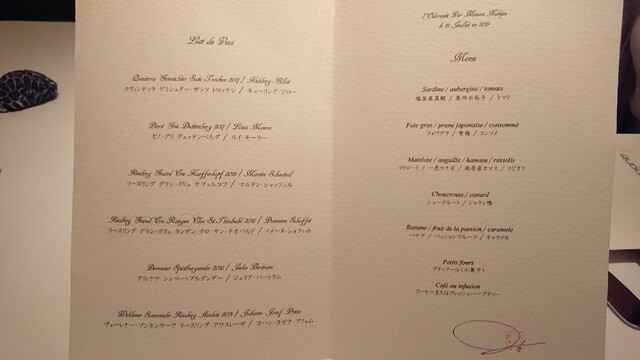 List de Vins
Gemischter Satz Trocken 2017 / Kühling-Gillot
クヴィンテッラ ゲミシュター・ザッツ トロッケン / キューリング・ジロー
Pinot Gris 2017 / Louis Maurer
ピノ・グリ / ルイ・モーラー
Riesling Grand Cru 2015 / Martin Schaetzel
リースリング グラン・クリュ / マルタン・シャッツェル
Riesling Grand Cru Rangen Clos St-Théobald 2016 / Domaine Schoffit
リースリング グラン・クリュ ランゲン クロ・サン・テオバルド / ドメーヌ・ショフィット
Dernauer Spätburgunder 2016 / Julia Bertram
デルナウ シュペートブルグンダー / ジュリア・バートラム
Wehlener Sonnenuhr Riesling Auslese 2014 / Johann Josef Prüm
ヴェーレナー・ゾンネンウーア リースリング・アウスレーゼ / ヨハン・ヨゼフ・プリュム
l'Odorante Par Minoru Nakijin
le 19 Juillet en 2019
Menu
Sardine / aubergine / tomate
/ トマト
Foie gras / prune japonaise / consommé
フォワグラ / 青梅 / コンソメ
Matelote / anguille / kamasu / raviolis
マトロート / 一色ウナギ / カマス / ラビオリ
Choucroute / canard
シュークルート / シャラン鴨
Banane / fruit de la passion / caramele
バナナ / パッションフルーツ / キャラメル
Petits fours
プティフール(小菓子)
Café ou infusion
コーヒーまたはフレッシュハーブティー